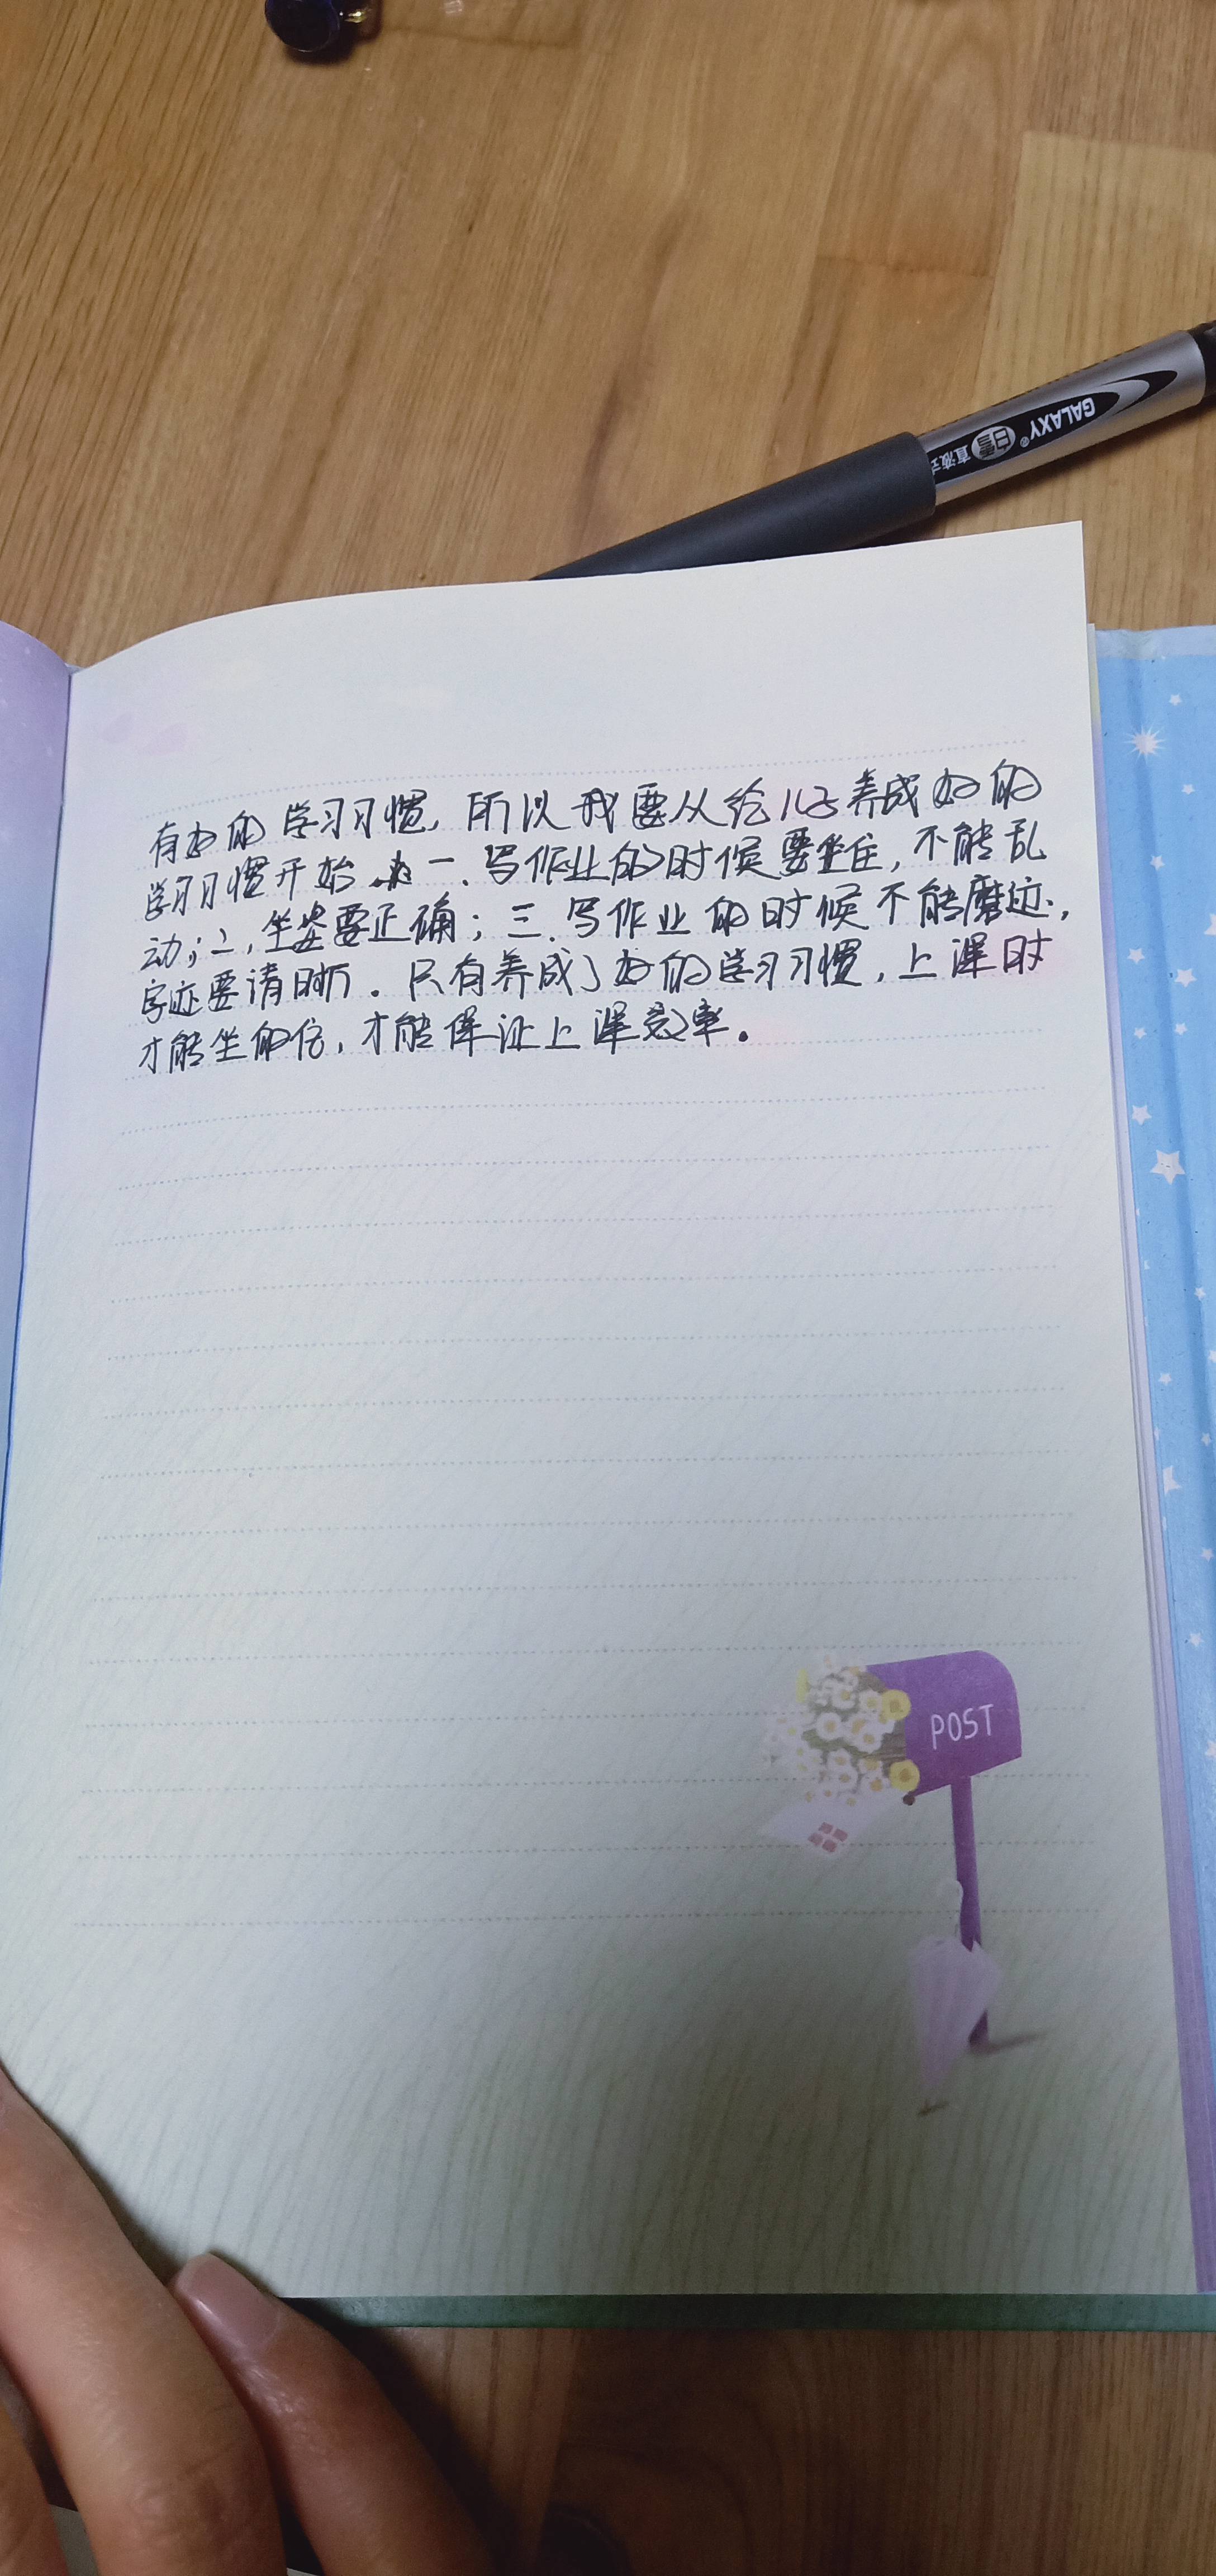 GALAXY®
白雪
直液式
有好的学习习惯，所以我要从给儿子养成好的
学习习惯开始。一.写作业的时候要坐住，不能乱
动；二，坐姿要正确；三.写作业的时候不能磨迹.，
字迹要请晰。只有养成了好的学习习惯，上课时
才能坐的住，才能保证上课率。
POST